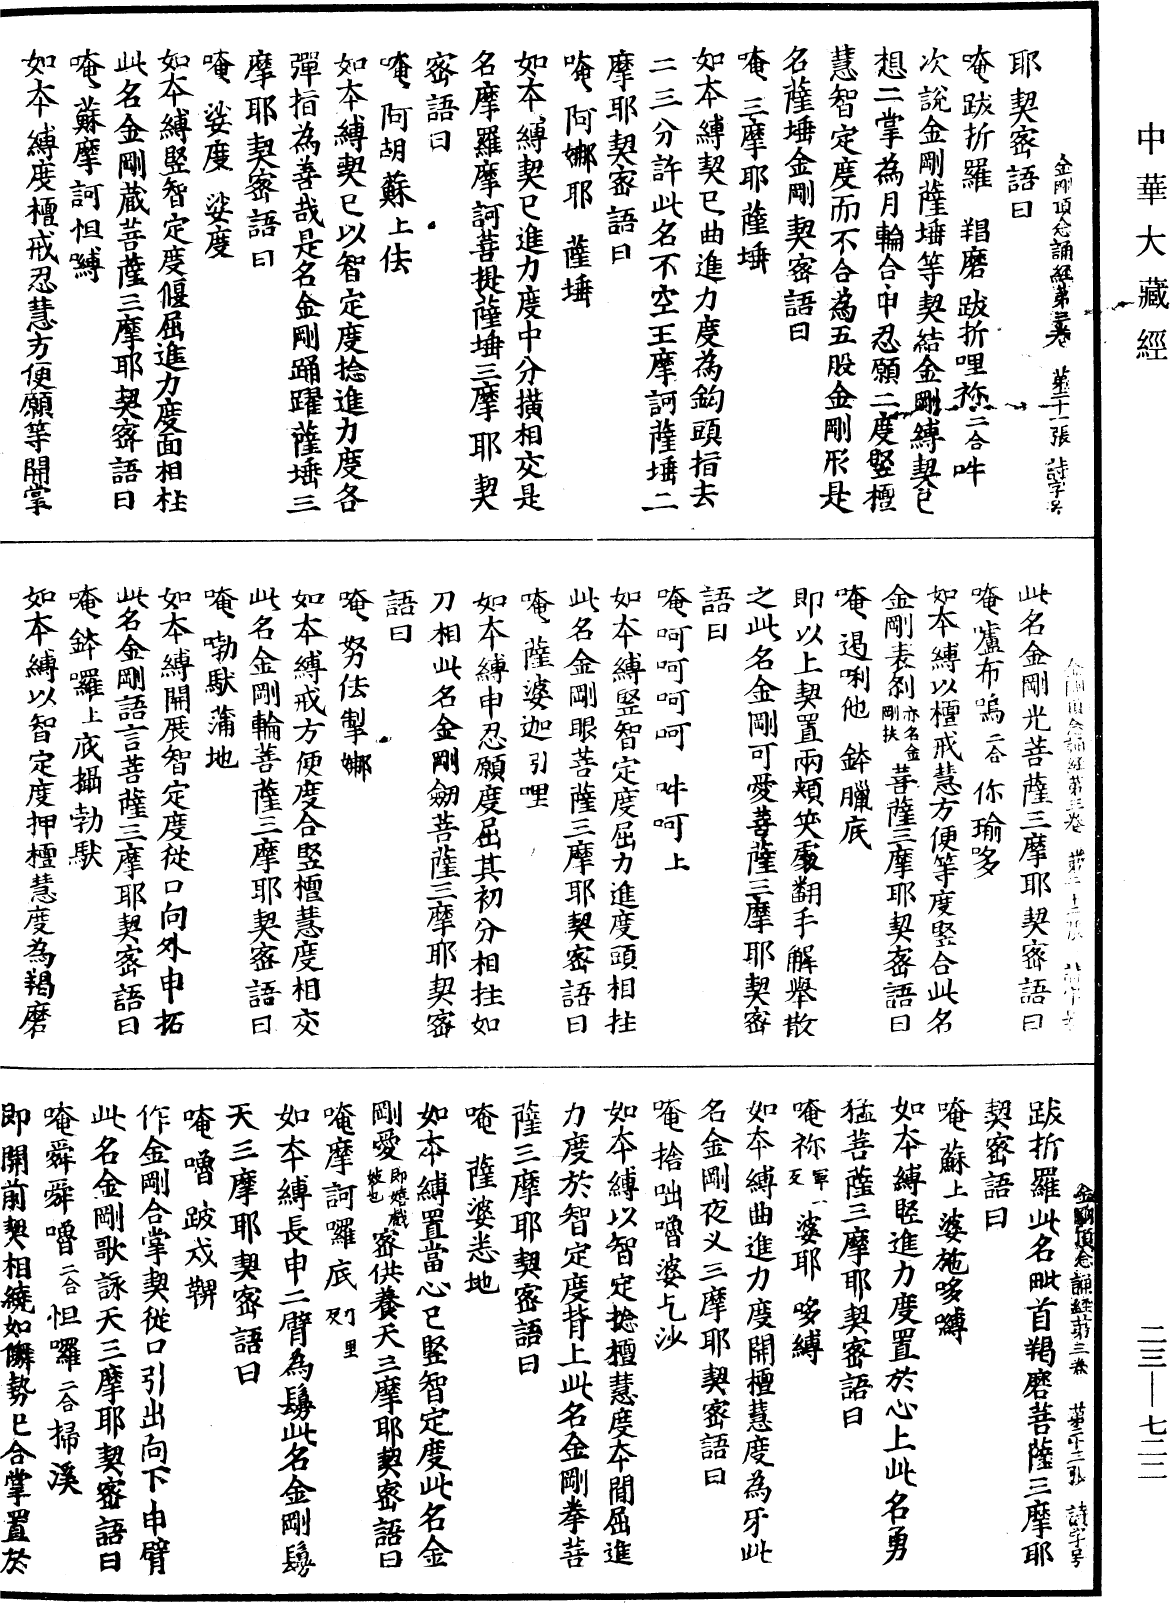 中華大藏經
二三—七二二
金剛頂念誦經第三卷 第二十一張 詩字号
耶契密語曰
唵跋折羅 羯磨 跋折哩祢二合吽
次說金剛薩埵等契結金剛縛契已
想二掌為月輪合中忍願二度竪檀
慧智定度而不合為五股金剛形是
名薩埵金剛契密語曰
唵三摩耶薩埵
如本縛契已曲進力度為鈎頭指去
二三分許此名不空王摩訶薩埵二
摩耶契密語曰
唵阿娜耶 薩埵
如本縛契已進力度中分撗相交是
名摩羅摩訶菩提薩埵三摩耶契
密語曰
唵阿胡蘇上佉
如本縛契已以智定度捻進力度各
彈指為善哉是名金剛踊躍薩埵三
摩耶契密語曰
唵娑度 娑度
如本縛竪智定度偃屈進力度面相柱
此名金剛蔵菩薩三摩耶契密語曰
唵蘇摩訶怛縛
如本縛度檀戒忍慧方便願等開掌
此名金剛光菩薩三摩耶契密語曰
唵嚧布嗚二合 你瑜多
如本縛以檀戒慧方便等度竪合此名
金剛表剎亦名金剛扶菩薩三摩耶契密語曰
唵遏唎他 鉢臘底
即以上契置兩頰笑處翻手解舉散
之此名金剛可愛菩薩三摩耶契密
語曰
唵呵呵呵呵 吽呵上
如本縛竪智定度屈力進度頭相拄
此名金剛眼菩薩三摩耶契密語曰
唵薩婆迦引哩
如本縛申忍願度屈其初分相拄如
刀相此名金剛劒菩薩三摩耶契密
語曰
唵努佉掣娜
如本縛戒方便度合竪檀慧度相交
此名金剛輪菩薩三摩耶契密語曰
唵勃馱蒲地
如本縛開展智定度從口向外申拓
此名金剛語言菩薩三摩耶契密語曰
唵鉢囉上底攝勃馱
如本縛以智定度押檀慧度為羯磨
金剛頂念誦經第三卷 第二十二張 詩字号
跋折羅此名毗首羯磨菩薩三摩耶
契密語曰
唵蘇上婆施哆縛
如本縛竪進力度置於心上此名勇
猛菩薩三摩耶契密語曰
唵祢 婆耶 哆縛
如本縛曲進力度開檀慧度為牙此
名金剛夜叉三摩耶契密語曰
唵捨咄嚕婆乞沙
如本縛以智定捻檀慧度本間屈進
力度於智定度背上此名金剛拳菩
薩三摩耶契密語曰
唵 薩婆悉地
如本縛置當心已竪智定度此名金
剛愛即嬉戲妓也密供養天三摩耶契密語曰
唵摩訶囉底 里
如本縛長申二臂為鬘此名金剛鬘
天三摩耶契密語曰
唵嚕 跛戍鞞
作金剛合掌契從口引出向下申臂
此名金剛歌詠天三摩耶契密語曰
唵舜舜嚕二合怛囉二合掃溪
即開前契相繞如儛勢已合掌置於
金剛頂念誦經第三卷 第二十三張 詩字号